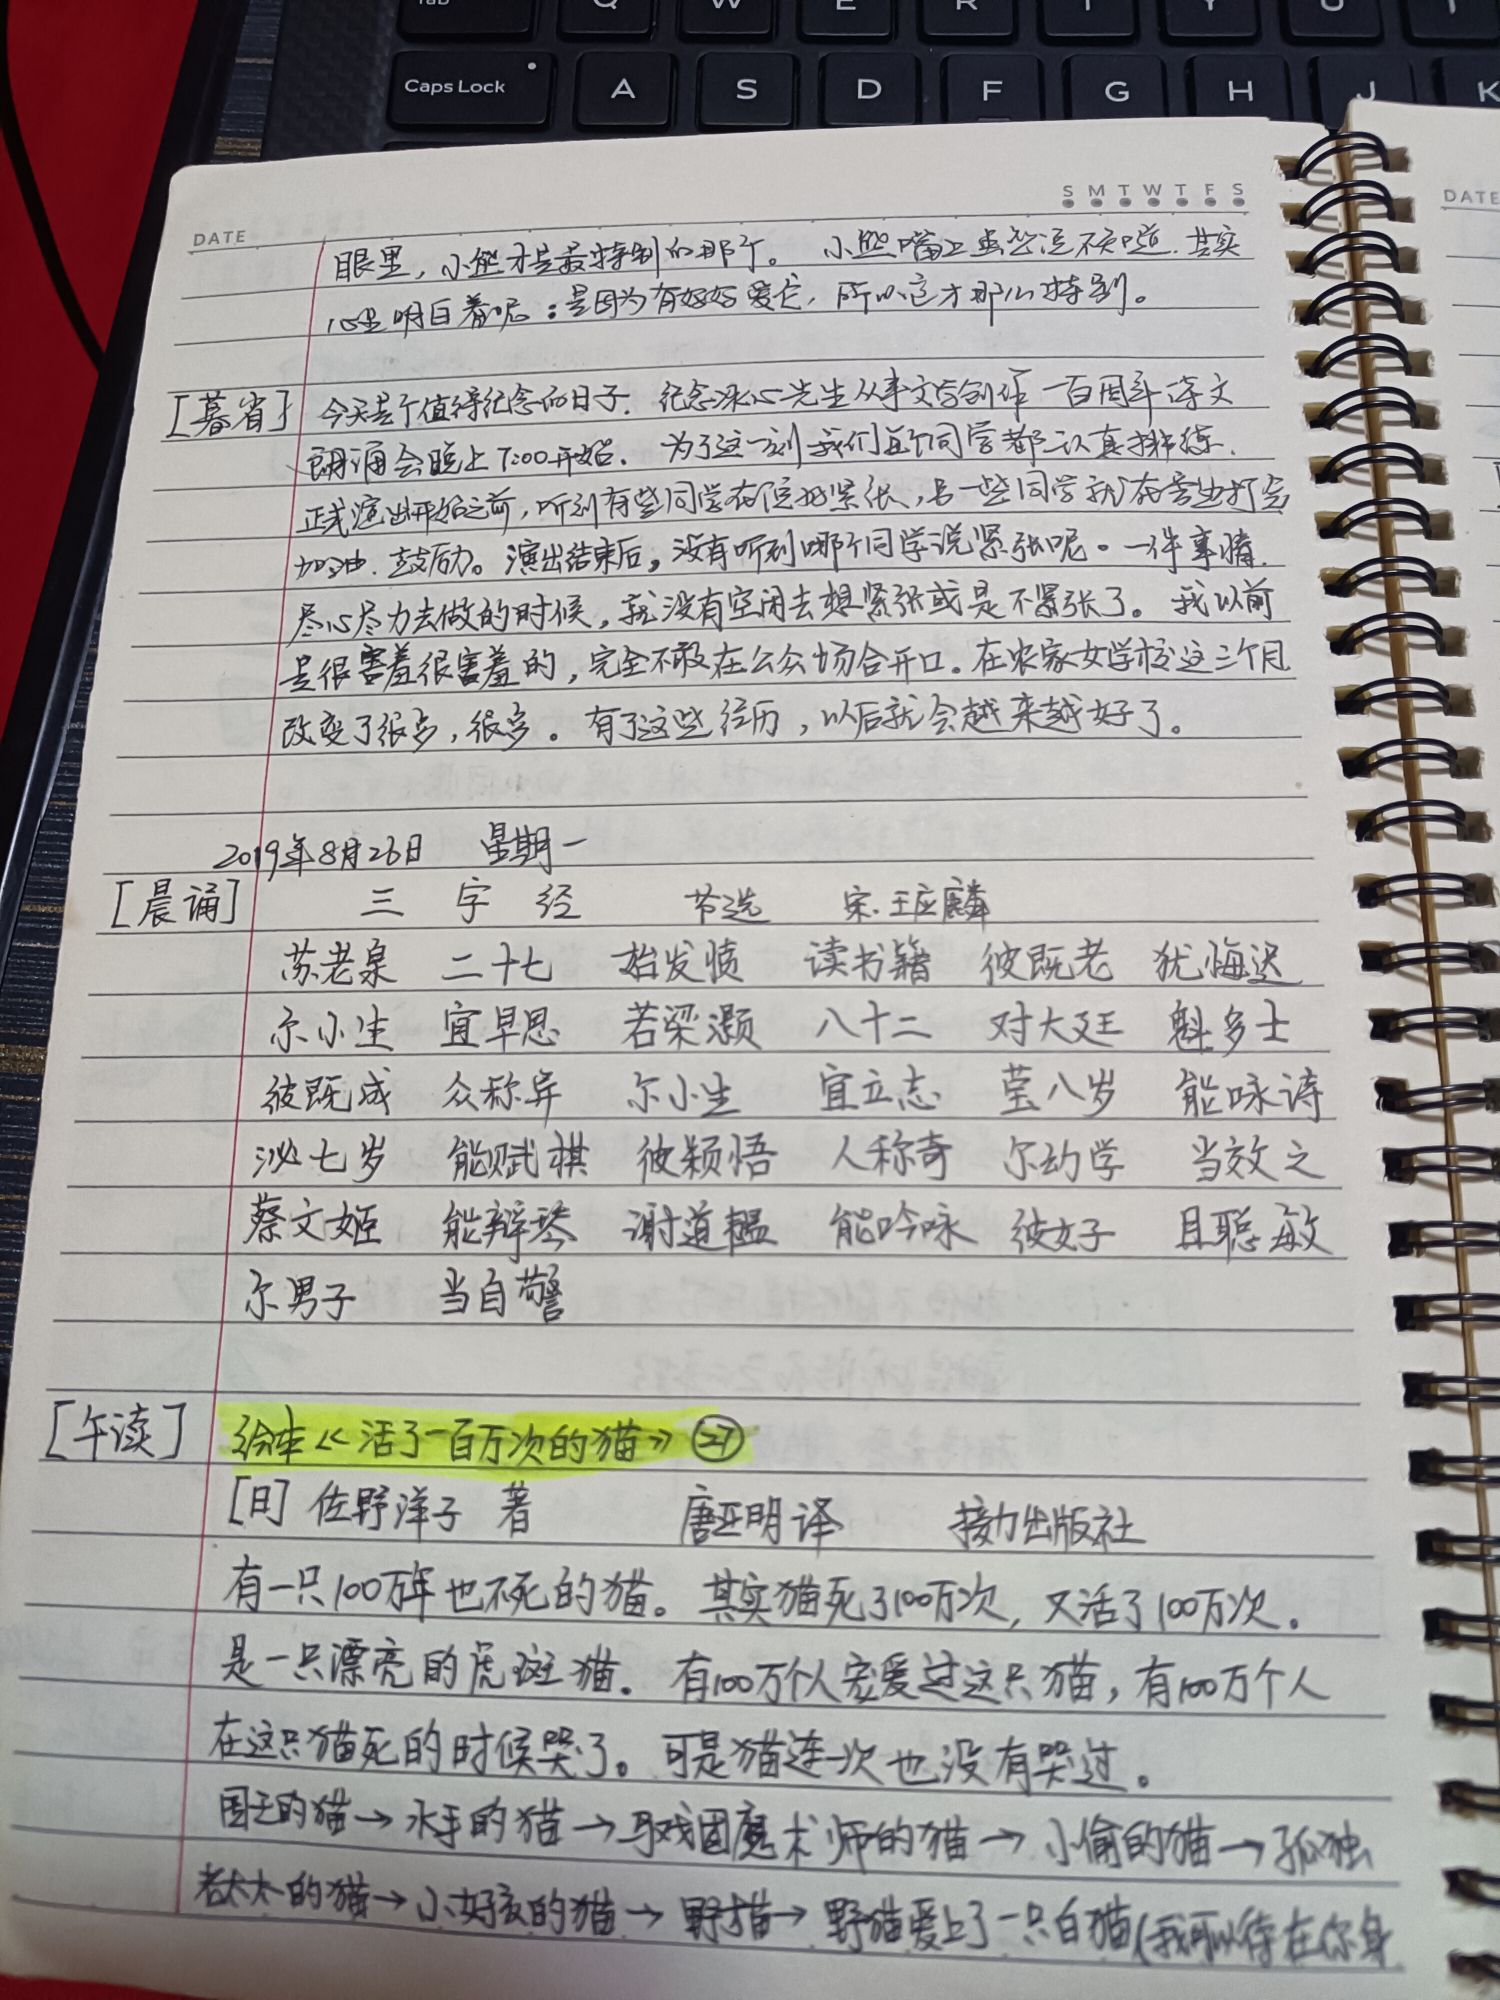 Tab Q W E R T Y U I
Caps Lock A S D F G H J K
S M T W T F S
DATE
DATE
眼里，小熊才是最特别的那个。 小熊嘴上虽然说不知道.其实
心里明白着呢：是因为有好好爱它，所以它才那么特别。
[暮省] 今天是个值得纪念的日子. 纪念冰心先生从事文学创作一百周年诗文
朗诵会晚上7:00开始. 为了这一刻我们每个同学都认真排练.
正式演出开始之前，听到有些同学在说好紧张，另一些同学就在旁边打气
加油.鼓励。演出结束后，没有听到哪个同学说紧张呢。一件事情.
尽心尽力去做的时候，就没有空闲去想紧张或是不紧张了。我以前
是很害羞很害羞的，完全不敢在公众场合开口。在农家女学校这三个月
改变了很多，很多。有了这些经历，以后就会越来越好了。
2019年8月26日 星期一
[晨诵] 三 字 经 节选 宋.王应麟
苏老泉 二十七 始发愤 读书籍 彼既老 犹悔迟
尔小生 宜早思 若梁灏 八十二 对大廷 魁多士
彼既成 众称异 尔小生 宜立志 莹八岁 能咏诗
泌七岁 能赋棋 彼颖悟 人称奇 尔幼学 当效之
蔡文姬 能辩琴 谢道韫 能吟咏 彼女子 且聪敏
尔男子 当自警
[午读] 绘本《活了一百万次的猫》㉗
[日] 佐野洋子 著 唐亚明 译 接力出版社
有一只100万年也不死的猫。其实猫死了100万次，又活了100万次.
是一只漂亮的虎斑猫. 有100万个人宠爱过这只猫，有100万个人
在这只猫死的时候哭了。可是猫连一次也没有哭过.
国王的猫→水手的猫→马戏团魔术师的猫→小偷的猫→孤独
老太太的猫→小女孩的猫→野猫→野猫爱上了一只白猫(我可以待在你身